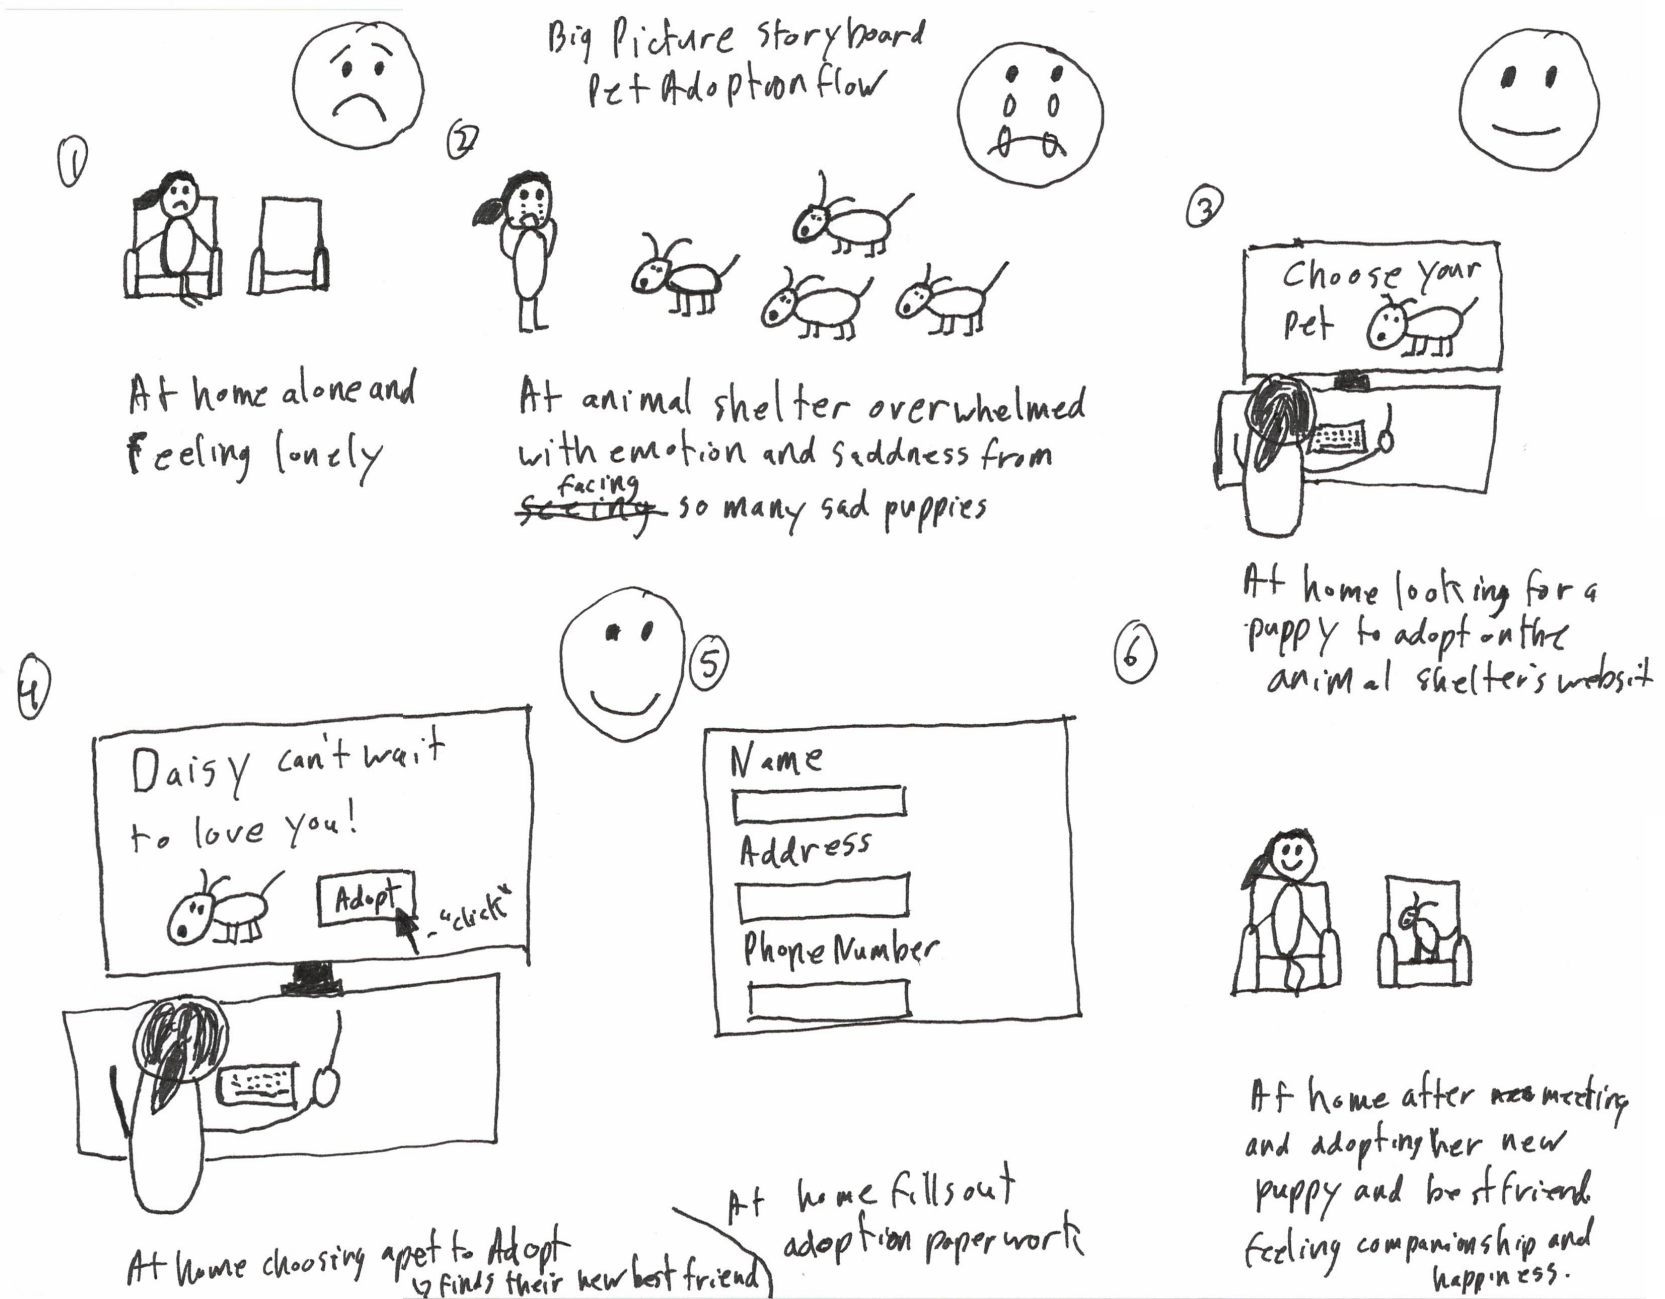 Big Picture Storyboard
Pet Adoption flow
1
2
3
At home alone and
Feeling lonely
At animal shelter overwhelmed
with emotion and saddness from
facing
seeing so many sad puppies
Choose Your
Pet
At home looking for a
puppy to adopt on the
animal shelter's websit
4
5
6
Daisy can't wait
to love you!
Adopt
"click"
At home choosing a pet to Adopt
↳ finds their new best friend
Name
Address
Phone Number
At home fills out
adoption paperwork
At home after meeting
and adopting her new
puppy and best friend
feeling companionship and
happiness.